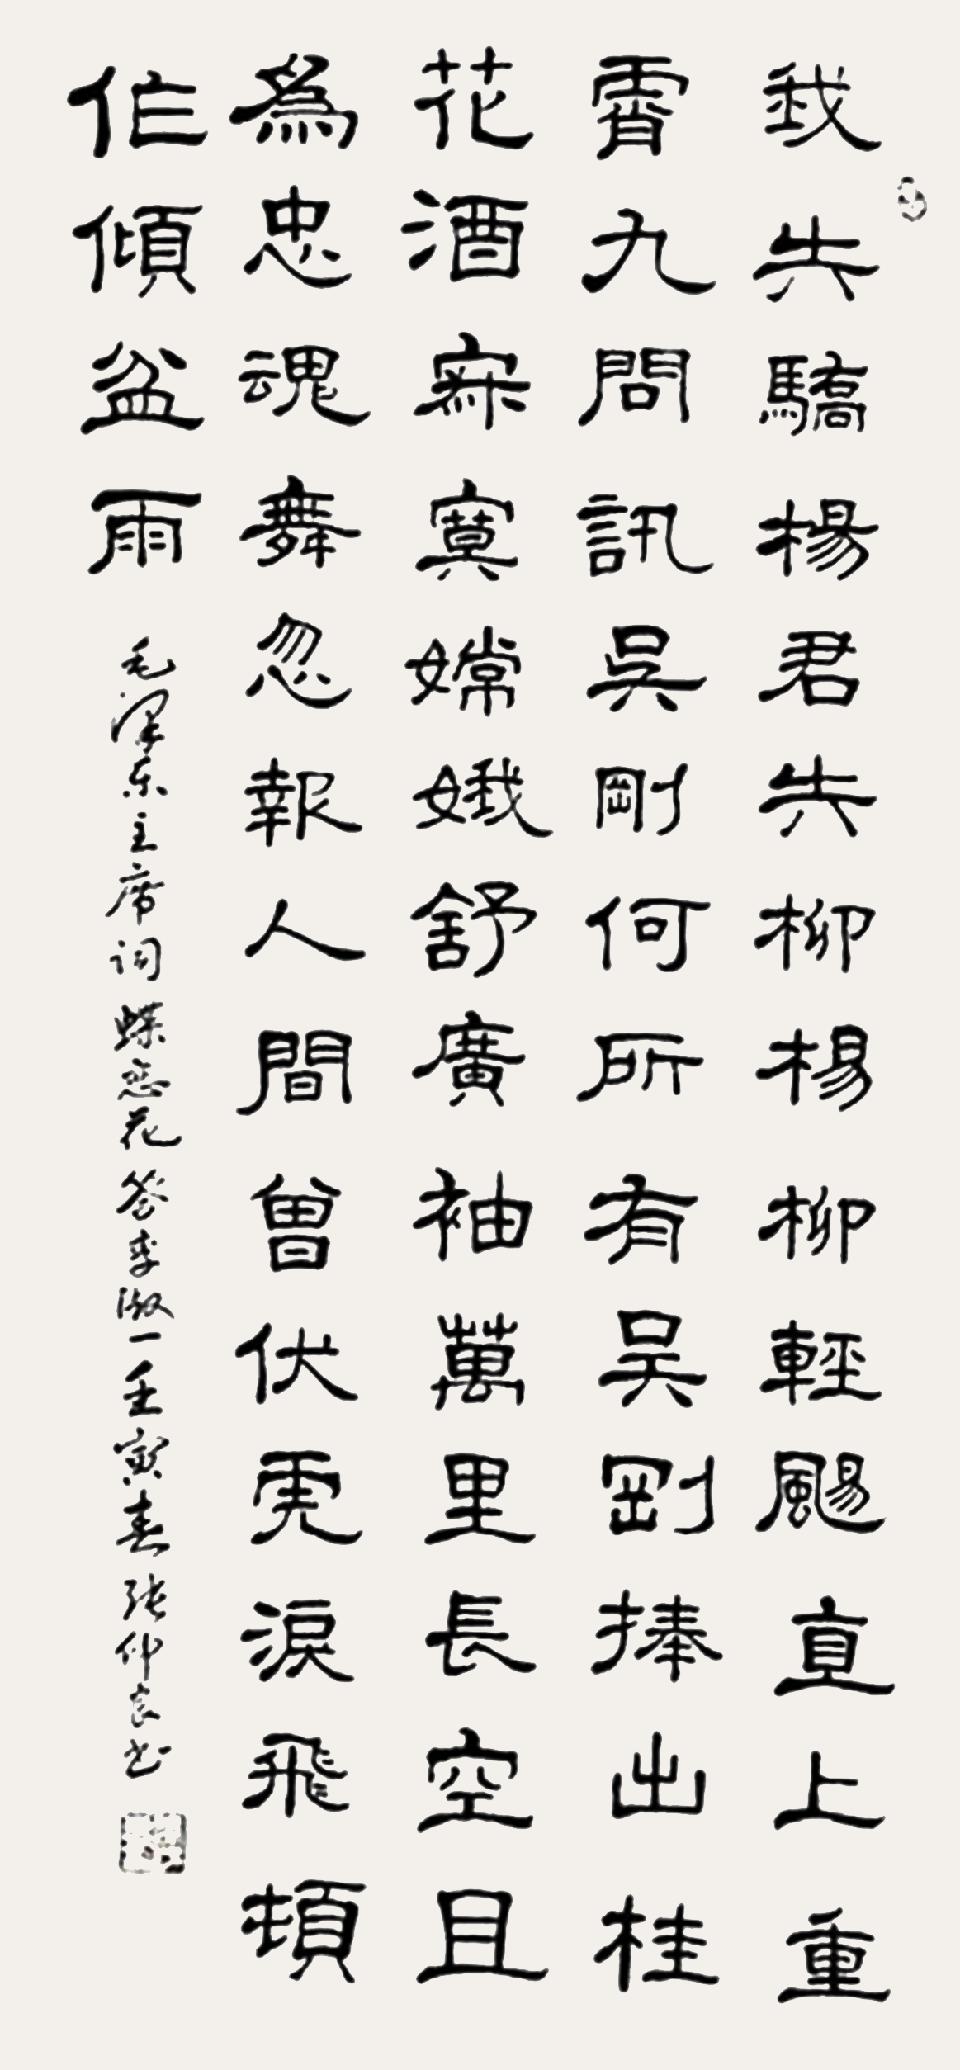 我失驕楊君失柳楊柳輕颺直上重
霄九問訊吳剛何所有吳剛捧出桂
花酒寂寞嫦娥舒廣袖萬里長空且
為忠魂舞忽報人間曾伏虎淚飛頓
作傾盆雨
毛澤东主席词蝶恋花答李淑一壬寅春张仲良书